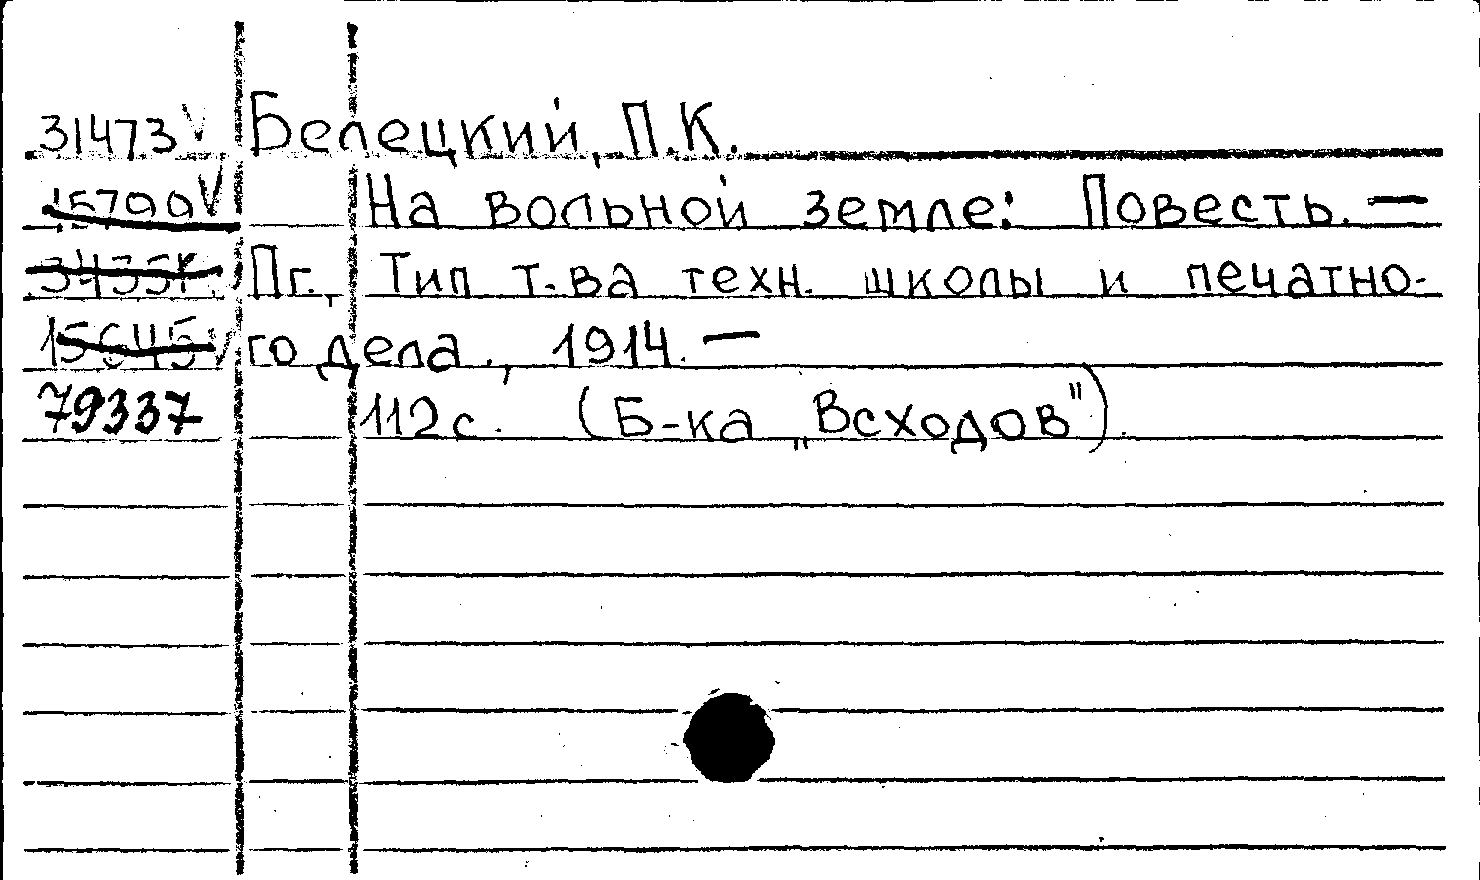 31473 V Белецкий, П.К.
15799 V На вольной земле: Повесть. —
Пг., Тип т-ва техн. школы и печатно-
15645 V го дела., 1914. —
79337 112 с. (Б-ка „Всходов")